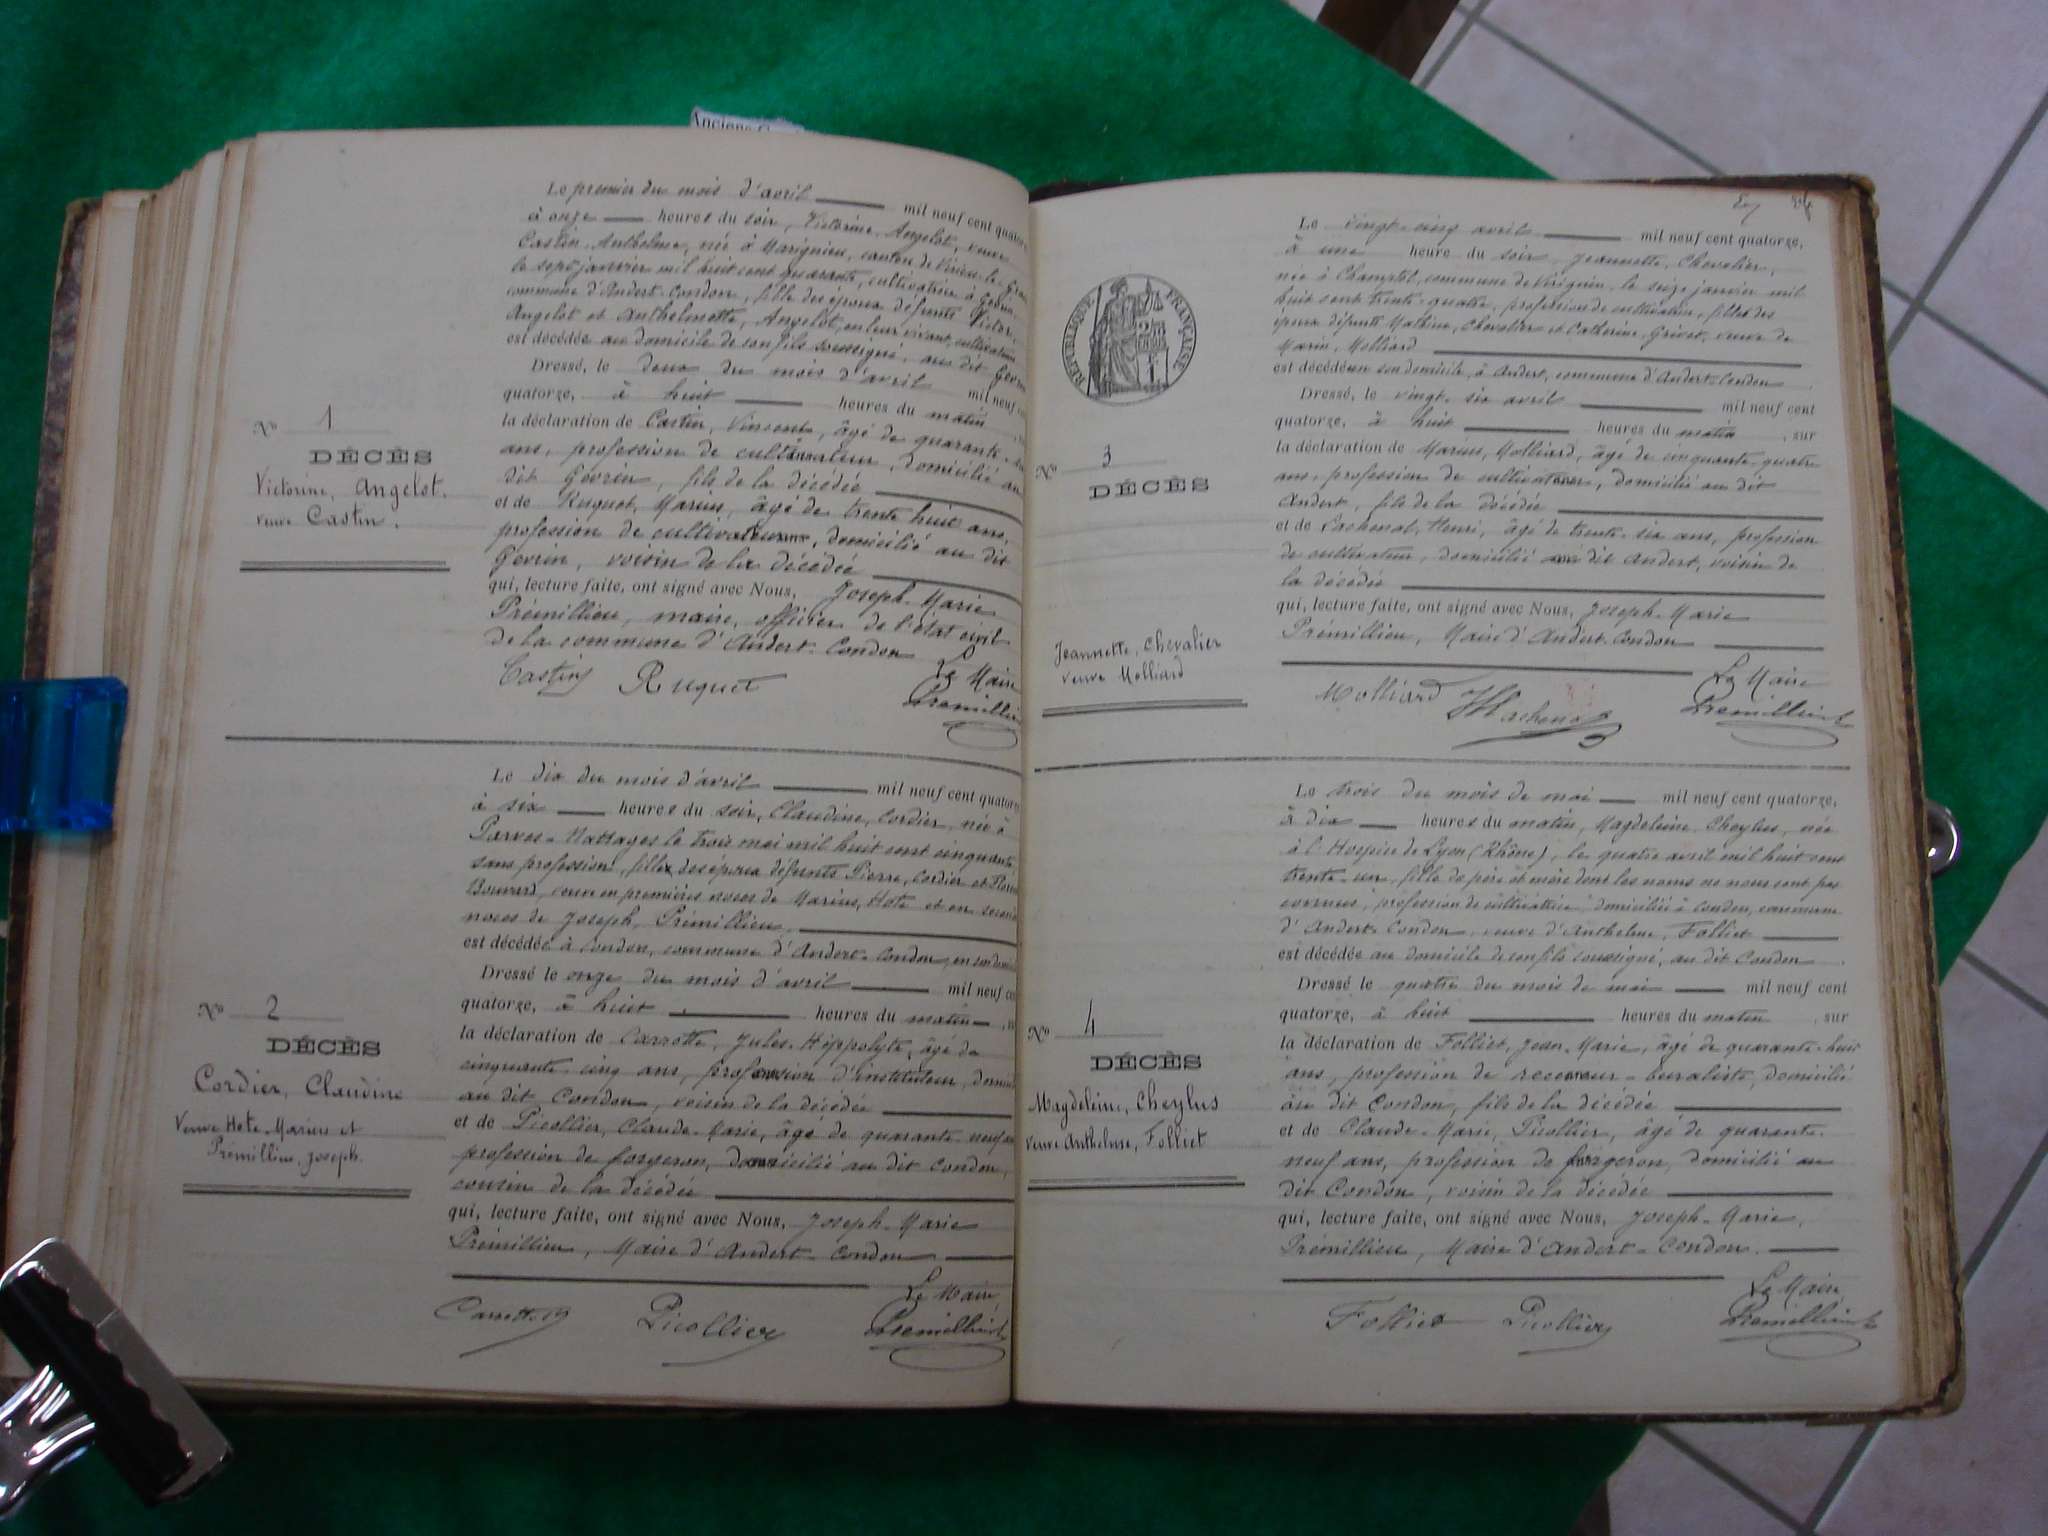 Anciens
Le premier du mois d'avril mil neuf cent quatorze
à onze heures du soir, Victorine, Angelot, veuve
Castin, Anthelme, née à Marignieu, canton de Virieu-le-Grand
le sept janvier mil huit cent quarante, cultivatrice à Gevrin,
commune d'Andert-Condon, fille des époux défunts Victor,
Angelot et Anthelmette, Angelot, en leur vivant, cultivateurs
est décédée au domicile de son fils soussigné, au dit Gevrin
Dressé, le deux du mois d'avril mil neuf cent
quatorze, à huit heures du matin
la déclaration de Castin, Vincent, âgé de quarante
ans, profession de cultivateur, domicilié au
dit Gevrin, fils de la décédée
et de Ruguet, Marius, âgé de trente huit ans,
profession de cultivateur, domicilié au dit
Gevrin, voisin de la décédée
qui, lecture faite, ont signé avec Nous, Joseph-Marie
Prémillieu, maire, officier de l'état civil
de la commune d'Andert-Condon
Castin Ruguet Le Maire
Premillieu
No 1
DÉCÈS
Victorine, Angelot.
veuve Castin.
Le dix du mois d'avril mil neuf cent quatorze
à six heures du soir, Claudine, Cordier, née à
Parves-Nattages le trois mai mil huit cent cinquante,
sans profession, fille des époux défunts Pierre, Cordier et
Bouvard, veuve en premières noces de Marius, Hote et en
noces de Joseph, Prémillieu,
est décédée à Condon, commune d'Andert-Condon, en son
Dressé le onze du mois d'avril mil neuf cent
quatorze, à huit heures du matin
la déclaration de Carrette, Jules-Hippolyte, âgé de
cinquante-cinq ans, profession d'instituteur,
au dit Condon, voisin de la décédée
et de Picollier, Claude-Marie, âgé de quarante-neuf
profession de forgeron, domicilié au dit Condon,
cousin de la décédée
qui, lecture faite, ont signé avec Nous, Joseph-Marie
Prémillieu, Maire d'Andert-Condon
Le Maire
Picollier Premillieu
No 2
DÉCÈS
Cordier, Claudine
Veuve Hote-Marius et
Prémillieu, Joseph.
Le vingt-cinq avril mil neuf cent quatorze,
à une heure du soir, Jeannette, Chevalier,
née à Champtel, commune de Virignin, le seize janvier mil
huit cent trente-quatre, profession de cultivatrice, fille des
époux défunts Mathieu, Chevalier et Catherine, Grivet, veuve de
Marin, Molliard
est décédée en son domicile, à Andert, commune d'Andert-Condon
Dressé, le vingt-six avril mil neuf cent
quatorze, à huit heures du matin, sur
la déclaration de Marius, Molliard, âgé de cinquante-quatre
ans, profession de cultivateur, domicilié au dit
Andert, fils de la décédée
et de Lachenal, Henri, âgé de trente-six ans, profession
de cultivateur, domicilié au dit Andert, voisin de
la décédée
qui, lecture faite, ont signé avec Nous, Joseph-Marie
Prémillieu, Maire d'Andert-Condon
Le Maire
Molliard HLachenal Premillieu
RÉPUBLIQUE FRANÇAISE
No 3
DÉCÈS
Jeannette, Chevalier
veuve Molliard
Le trois du mois de mai mil neuf cent quatorze,
à dix heures du matin, Magdeleine, Cheylus, née
à l'Hospice de Lyon (Rhône), le quatre avril mil huit cent
trente-un, fille de père et mère dont les noms ne nous sont pas
connus, profession de cultivatrice, domiciliée à Condon, commune
d'Andert-Condon, veuve d'Anthelme, Folliet
est décédée au domicile de son fils soussigné, au dit Condon.
Dressé le quatre du mois de mai mil neuf cent
quatorze, à huit heures du matin, sur
la déclaration de Folliet, Jean-Marie, âgé de quarante-huit
ans, profession de receveur-buraliste, domicilié
au dit Condon, fils de la décédée
et de Claude-Marie, Picollier, âgé de quarante-
neuf ans, profession de forgeron, domicilié au
dit Condon, voisin de la décédée
qui, lecture faite, ont signé avec Nous, Joseph-Marie,
Prémillieu, Maire d'Andert-Condon.
Le Maire
Folliet Picollier Premillieu
No 4
DÉCÈS
Magdeleine, Cheylus
veuve Anthelme, Folliet